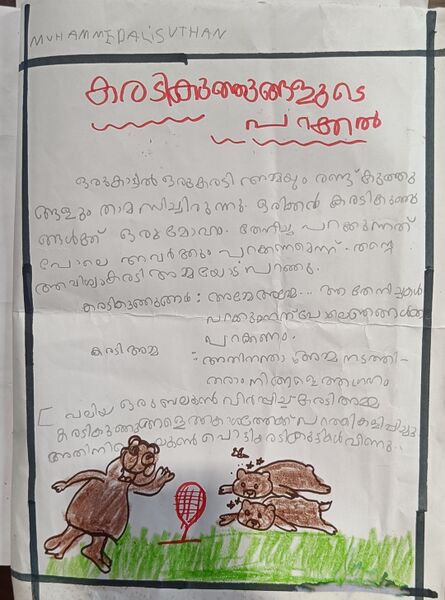 MUHAMMEDALISUTHAN
കരടികുഞ്ഞുങ്ങളുടെ
പറക്കൽ
ഒരുകാട്ടിൽ ഒരുകരടി അമ്മയും രണ്ട് കുഞ്ഞു
ങ്ങളും താമസിച്ചിരുന്നു. ഒരിക്കൽ കരടികുഞ്ഞു
ങ്ങൾക്ക് ഒരുമോഹം. തേനീച്ച പറക്കുന്നത്
പോലെ അവർക്കും പറക്കണമെന്ന്. തന്റെ
കരടി അമ്മയോട് പറഞ്ഞു.
കരടികുഞ്ഞുങ്ങൾ : അമ്മേ അമ്മേ... ആ തേനീച്ചകൾ
പറക്കുന്നത്പോലെ ഞങ്ങൾക്കും
പറക്കണം.
കരടി അമ്മ : അതിനെന്താ അമ്മ നടത്തി-
തരാം നിങ്ങളുടെ ആഗ്രഹം
[ പഴയ ഒരു ബലൂൺ വീർപ്പിച്ച് കരടിഅമ്മ
കരടികുഞ്ഞുങ്ങളെ ആകാശത്തേക്ക് പറത്തികളിപ്പിച്ചു
ബലൂൺ പൊട്ടി കരടികുട്ടികൾ വീണു..